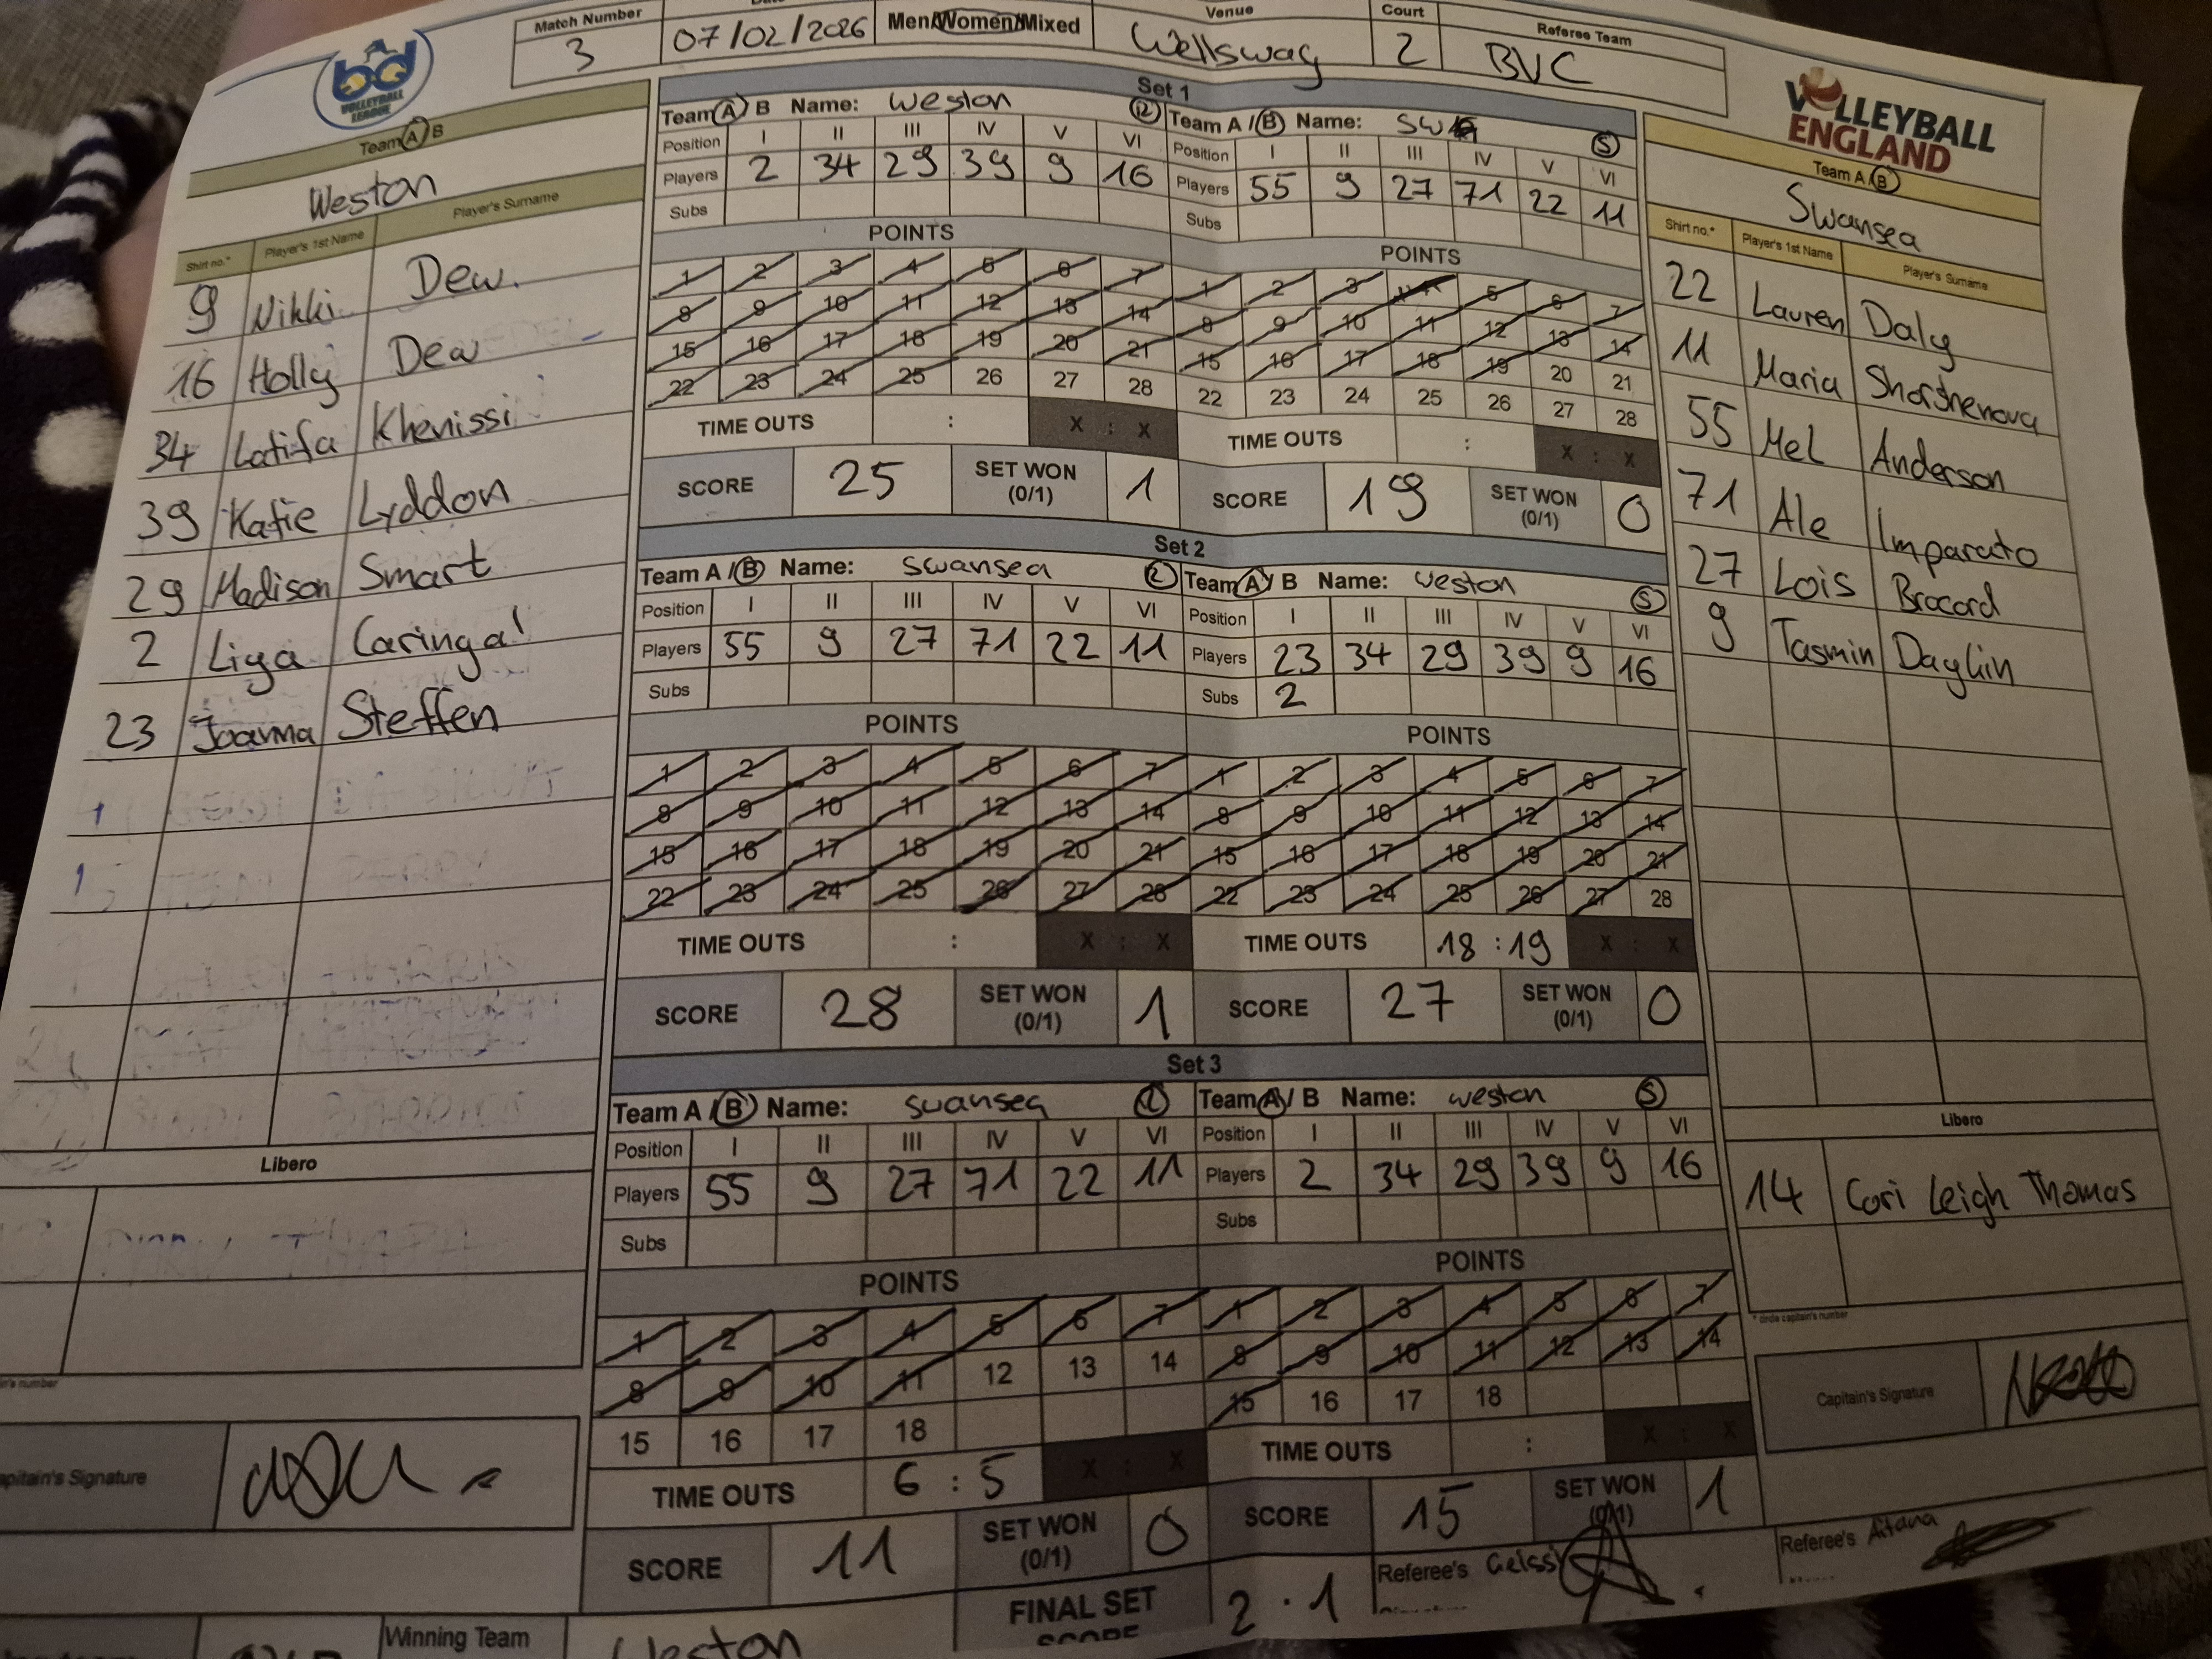 Match Number
3
07/02/2026
Men/Women/Mixed
Venue
Wellsway
Court
2
Referee Team
BVC
bd
VOLLEYBALL
LEAGUE
VOLLEYBALL
ENGLAND
Team A B
Weston
Shirt no.* Player's 1st Name Player's Surname
9 Nikki Dew.
16 Holly Dew
34 Latifa Khenissi
39 Katie Lyddon
29 Madison Smart
2 Liya Caringal
23 Joanna Steffen
Libero
Captain's Signature
Set 1
Team A B Name: Weston R
Position I II III IV V VI
Players 2 34 29 39 9 16
Subs
POINTS
1 2 3 4 5 6 7
8 9 10 11 12 13 14
15 16 17 18 19 20 21
22 23 24 25 26 27 28
TIME OUTS : X : X
SCORE 25 SET WON (0/1) 1
Team A / B Name: SW S
Position I II III IV V VI
Players 55 9 27 71 22 11
Subs
POINTS
1 2 3 4 5 6 7
8 9 10 11 12 13 14
15 16 17 18 19 20 21
22 23 24 25 26 27 28
TIME OUTS : X : X
SCORE 19 SET WON (0/1) 0
Set 2
Team A / B Name: Swansea R
Position I II III IV V VI
Players 55 9 27 71 22 11
Subs
POINTS
1 2 3 4 5 6 7
8 9 10 11 12 13 14
15 16 17 18 19 20 21
22 23 24 25 26 27 28
TIME OUTS : X : X
SCORE 28 SET WON (0/1) 1
Team A / B Name: weston S
Position I II III IV V VI
Players 23 34 29 39 9 16
Subs 2
POINTS
1 2 3 4 5 6 7
8 9 10 11 12 13 14
15 16 17 18 19 20 21
22 23 24 25 26 27 28
TIME OUTS 18 : 19 X : X
SCORE 27 SET WON (0/1) 0
Set 3
Team A / B Name: swansea R
Position I II III IV V VI
Players 55 9 27 71 22 11
Subs
POINTS
1 2 3 4 5 6 7
8 9 10 11 12 13 14
15 16 17 18
TIME OUTS 6 : 5 X : X
SCORE 11 SET WON (0/1) 0
Team A / B Name: weston S
Position I II III IV V VI
Players 2 34 29 39 9 16
Subs
POINTS
1 2 3 4 5 6 7
8 9 10 11 12 13 14
15 16 17 18
TIME OUTS : X : X
SCORE 15 SET WON (0/1) 1
Team A B
Swansea
Shirt no.* Player's 1st Name Player's Surname
22 Lauren Daly
11 Maria Shorshenova
55 Mel Anderson
71 Ale Imparato
27 Lois Brocard
9 Tasmin Daglin
Libero
14 Cori Leigh Thomas
* circle captain's number
Capitain's Signature
Winning Team Weston
FINAL SET SCORE 2 · 1
Referee's Geissi
Referee's Aitana